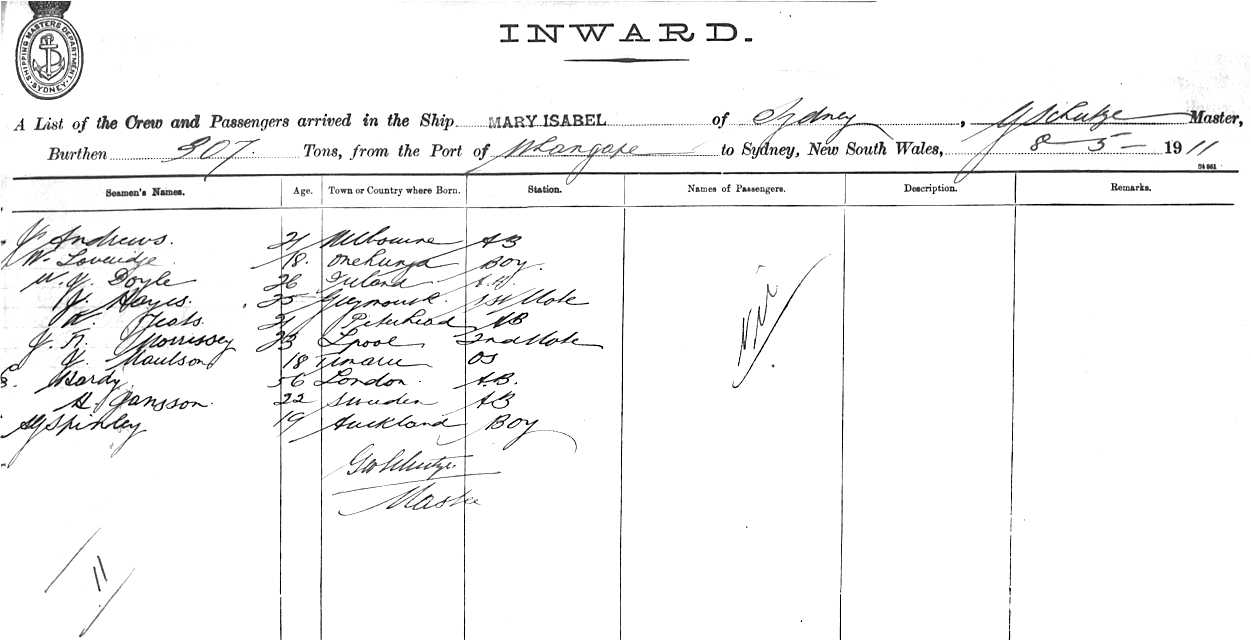 SHIPPING MASTERS DEPARTMENT
SYDNEY
INWARD.
A List of the Crew and Passengers arrived in the Ship MARY ISABEL of Sydney, G Schutze Master,
Burthen 307. Tons, from the Port of Whangape to Sydney, New South Wales, 8 - 5 - 1911
Seamen's Names. Age. Town or Country where Born. Station. Names of Passengers. Description. Remarks.
Andrews. 21 Melbourne AB
W. Loveridge 18. Onehunga Boy.
W. J. Doyle 26 Ireland
J. Hayes. 25 Greymouth 1st Mate
21 Peterhead AB
Morrissey 23 Lpool 2nd Mate
J. Maulson 18 Timaru OS
Hardy 56 London. A.B.
H. Jansson. 22 Sweden AB
Spinley 19 Auckland Boy
Nil
G Schutze
Master
11